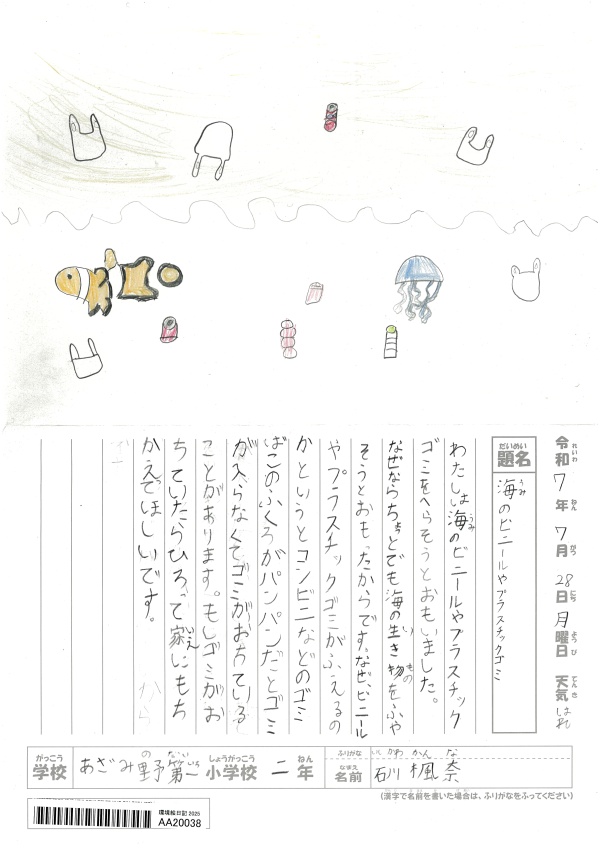 令和7年7月28日月曜日 天気 はれ
れいわ ねん がつ にち ようび てんき
だいめい
題名
海のビニールやプラスチックゴミ
うみ
わたしは海のビニールやプラスチック
うみ
ゴミをへらそうとおもいました。
なぜならちょっとでも海の生き物をふや
い もの
そうとおもったからです。なぜ、ビニール
やプラスチックゴミがふえるの
かというとコンビニなどのゴミ
ばこのふくろがパンパンだとゴミ
が入らなくてゴミがおちている
ことがあります。もしゴミがお
ちていたらひろって家にもち
かえってほしいです。
がっこう
学校
あざみ野第一小学校 二年
の だい いち しょうがっこう ねん
ふりがな
いしかわ かんな
なまえ
名前
石川 楓奈
(漢字で名前を書いた場合は、ふりがなをふってください)
環境絵日記 2025
AA20038